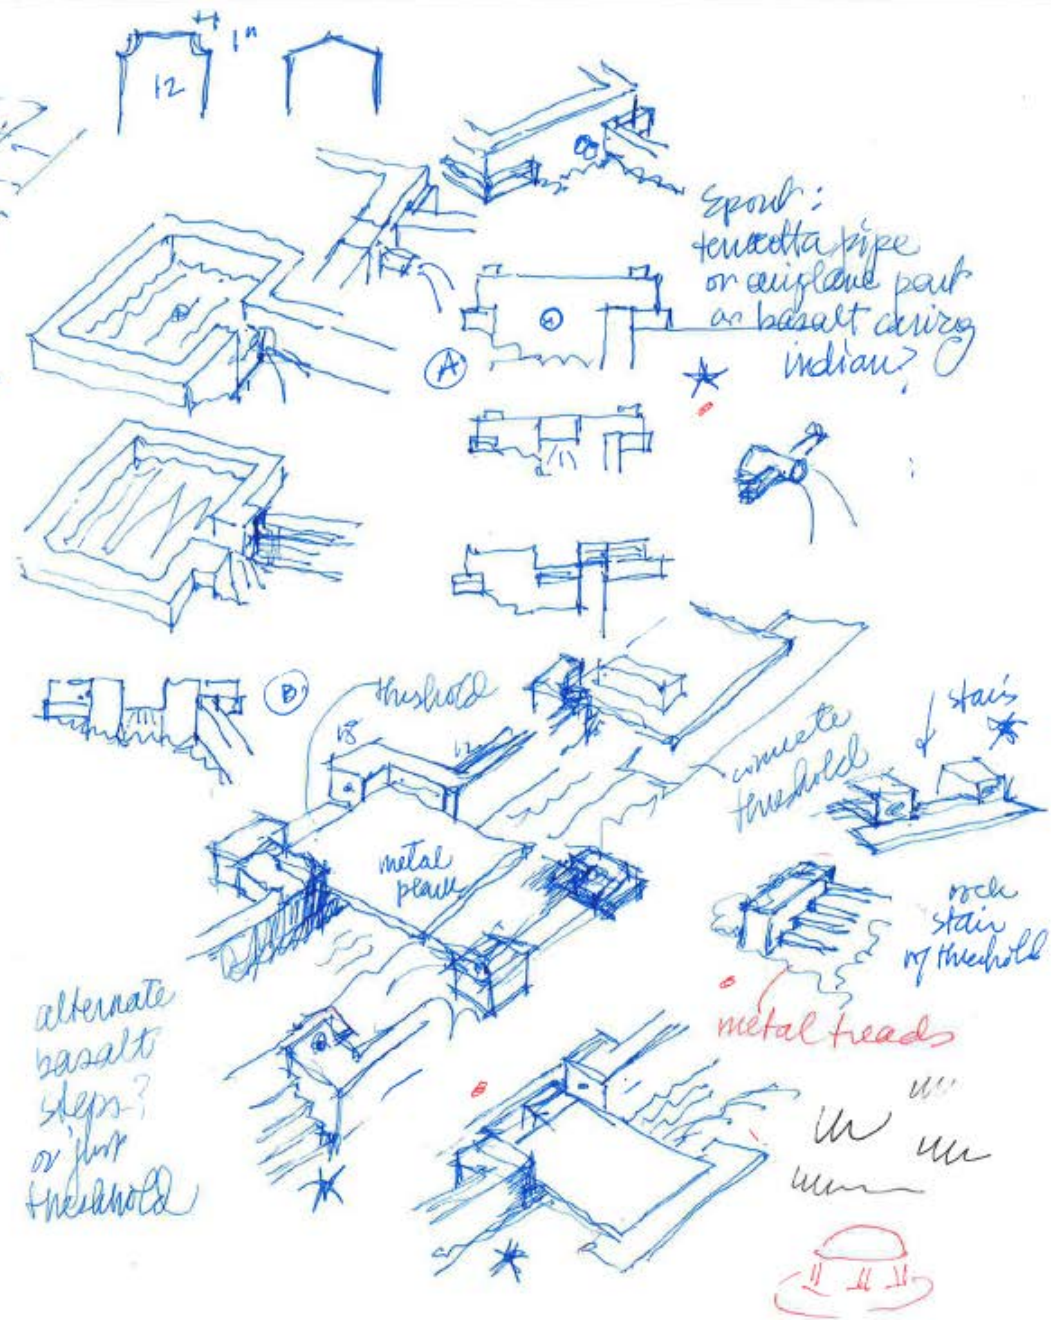 1"
12
Spout:
terracotta pipe
or airplane part
or basalt carving
indian?
A
A
B
threshold
18
12
stairs
concrete
threshold
metal
rock
stair
w/ threshold
metal treads
alternate
basalt
steps?
or just
threshold